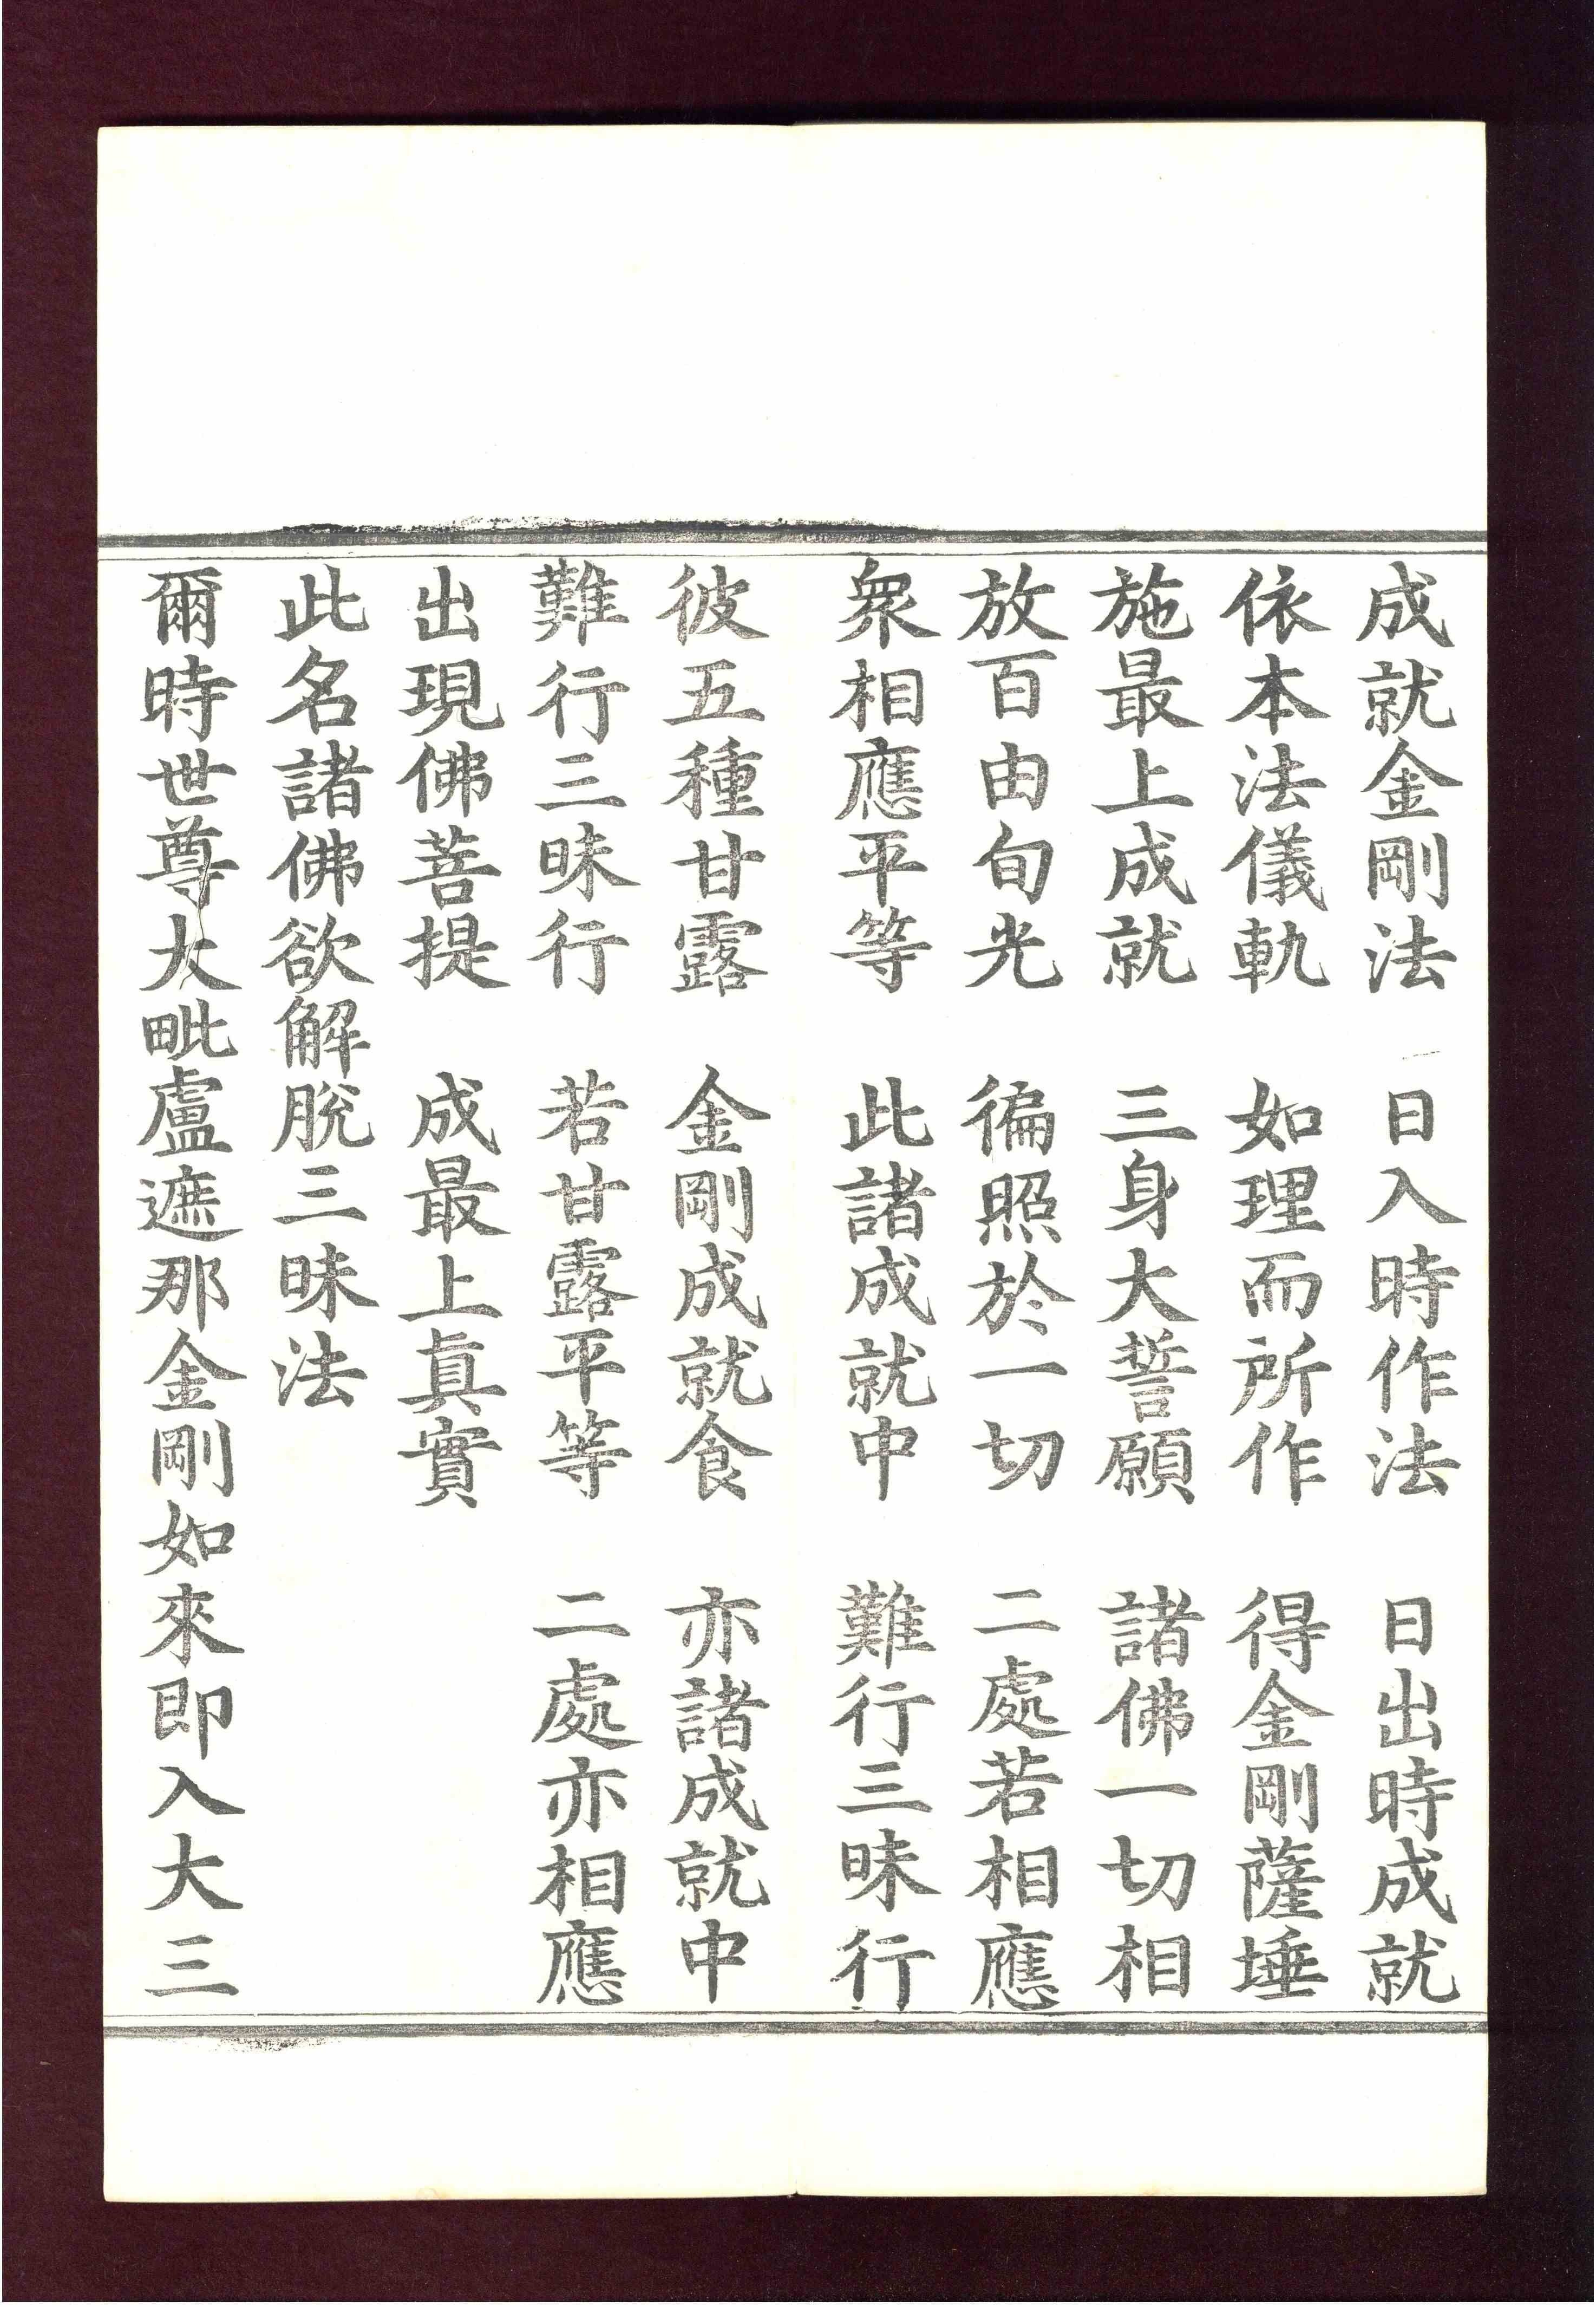 成就金剛法　日入時作法　日出時成就
依本法儀軌　如理而所作　得金剛薩埵
施最上成就　三身大誓願　諸佛一切相
放百由旬光　徧照於一切　二處若相應
衆相應平等　此諸成就中　難行三昧行
彼五種甘露　金剛成就食　亦諸成就中
難行三昧行　若甘露平等　二處亦相應
出現佛菩提　成最上眞實
此名諸佛欲解脫三昧法
爾時世尊大毗盧遮那金剛如來即入大三